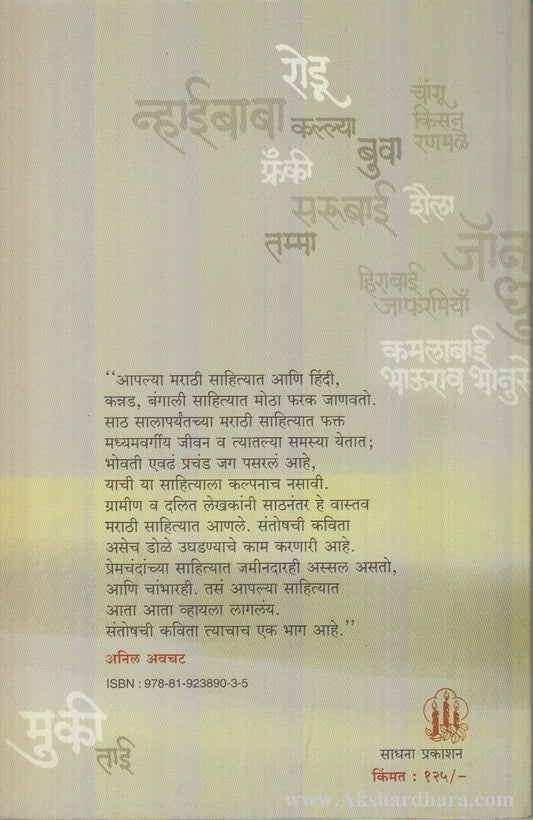 रोडू
न्हाईबाबा
कल्ल्या
चांगू
किसन
रणमळे
बुवा
फ्रँकी
सरूबाई
शैला
तम्मा
जॉन
हिराबाई
जाफरमियाँ
धु
कमलाबाई
भाऊराव भोनुसे
“आपल्या मराठी साहित्यात आणि हिंदी,
कन्नड, बंगाली साहित्यात मोठा फरक जाणवतो.
साठ सालापर्यंतच्या मराठी साहित्यात फक्त
मध्यमवर्गीय जीवन व त्यातल्या समस्या येतात;
भोवती एवढं प्रचंड जग पसरलं आहे,
याची या साहित्याला कल्पनाच नसावी.
ग्रामीण व दलित लेखकांनी साठनंतर हे वास्तव
मराठी साहित्यात आणले. संतोषची कविता
असेच डोळे उघडण्याचे काम करणारी आहे.
प्रेमचंदांच्या साहित्यात जमीनदारही अस्सल असतो,
आणि चांभारही. तसं आपल्या साहित्यात
आता आता व्हायला लागलंय.
संतोषची कविता त्याचाच एक भाग आहे.”
अनिल अवचट
ISBN : 978-81-923890-3-5
मुकी
ताई
साधना प्रकाशन
किंमत : १२५/-
www.Akshardhara.com